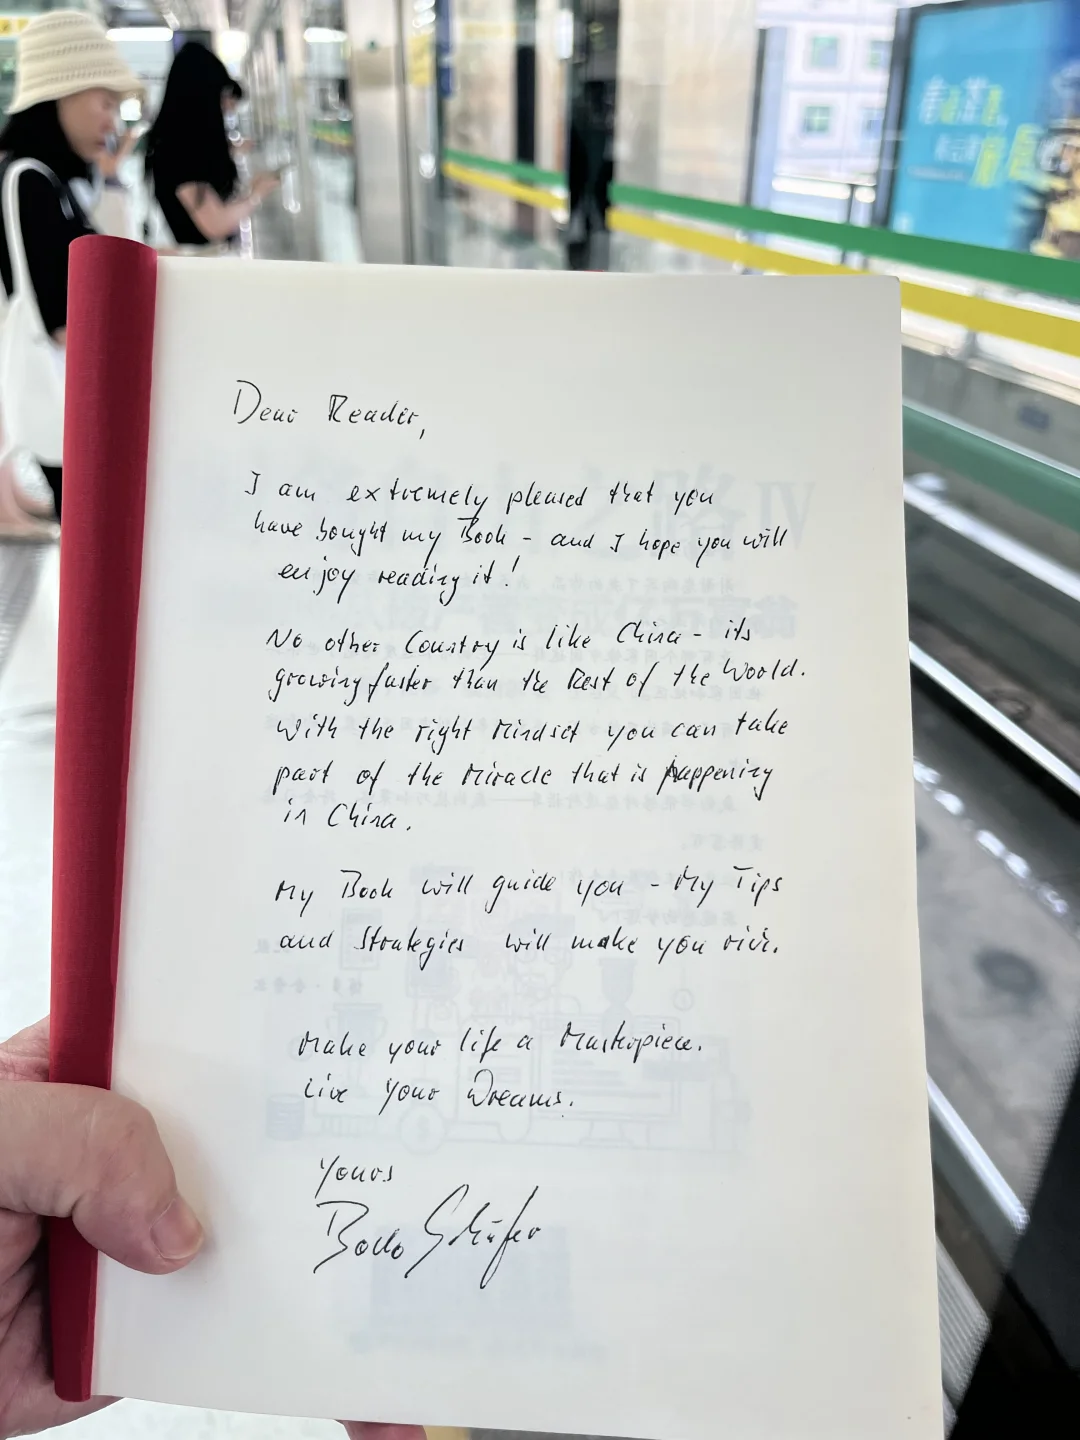 Dear Reader,
I am extremely pleased that you
have bought my Book - and I hope you will
enjoy reading it!
No other Country is like China - its
growing faster than the Rest of the World.
With the right Mindset you can take
part of the Miracle that is happening
in China.
My Book will guide you - My Tips
and Strategies will make you rich.
Make your life a Masterpiece.
Live your Dreams.
Yours
Bodo Schäfer